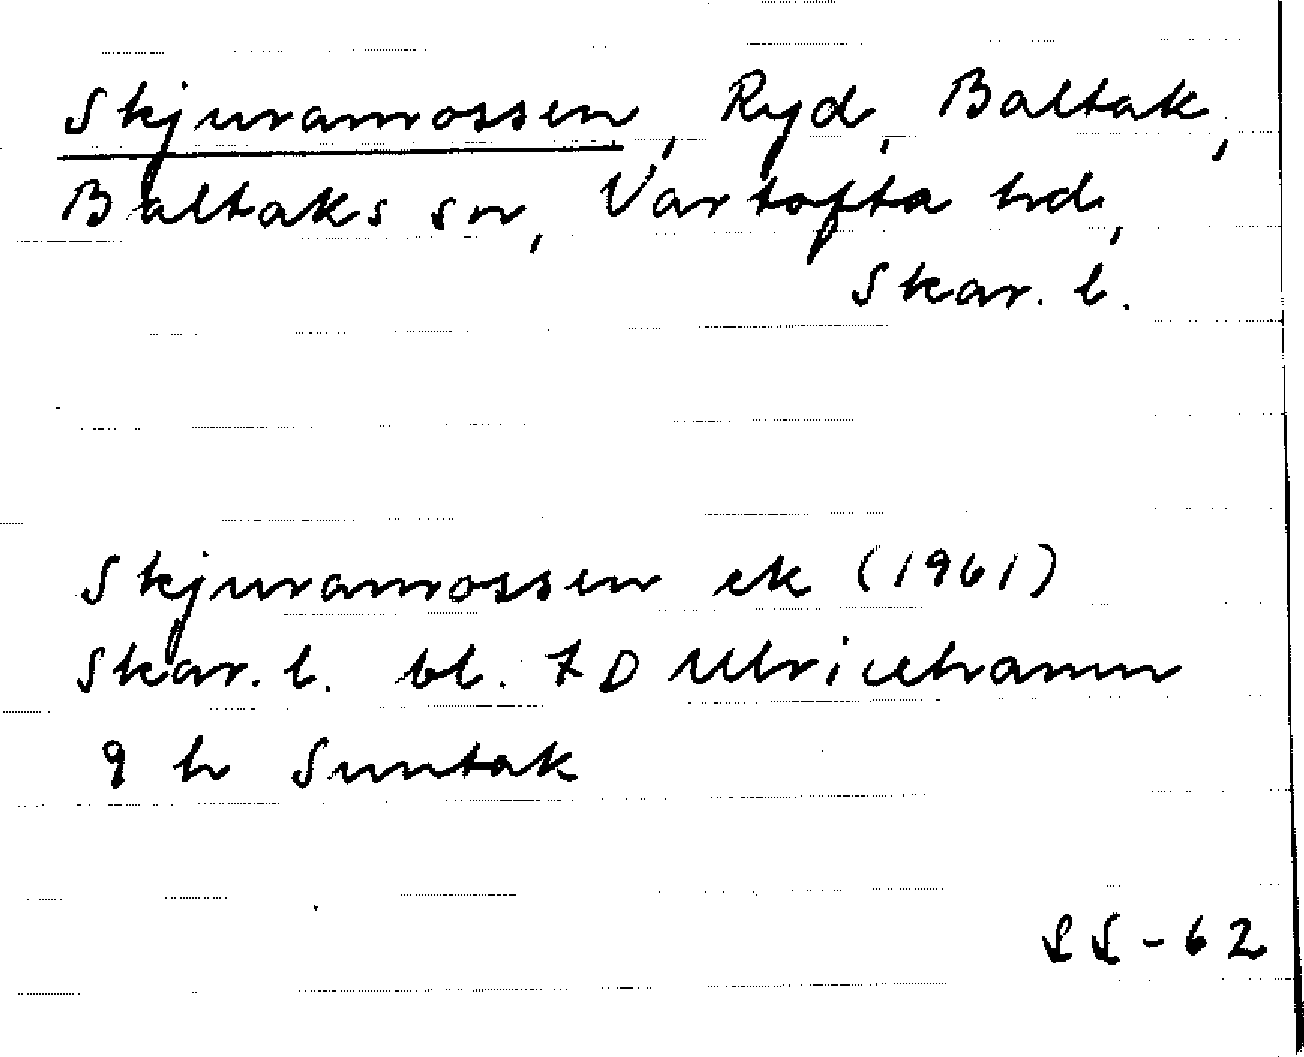 Skjuramossen, Ryd, Baltak,
Baltaks sn, Vartofta hd,
Skar. l.
Skjuramossen ek (1961)
Skar. l. bl. 7 D Ulricehamn
9 h Suntak
SS-62